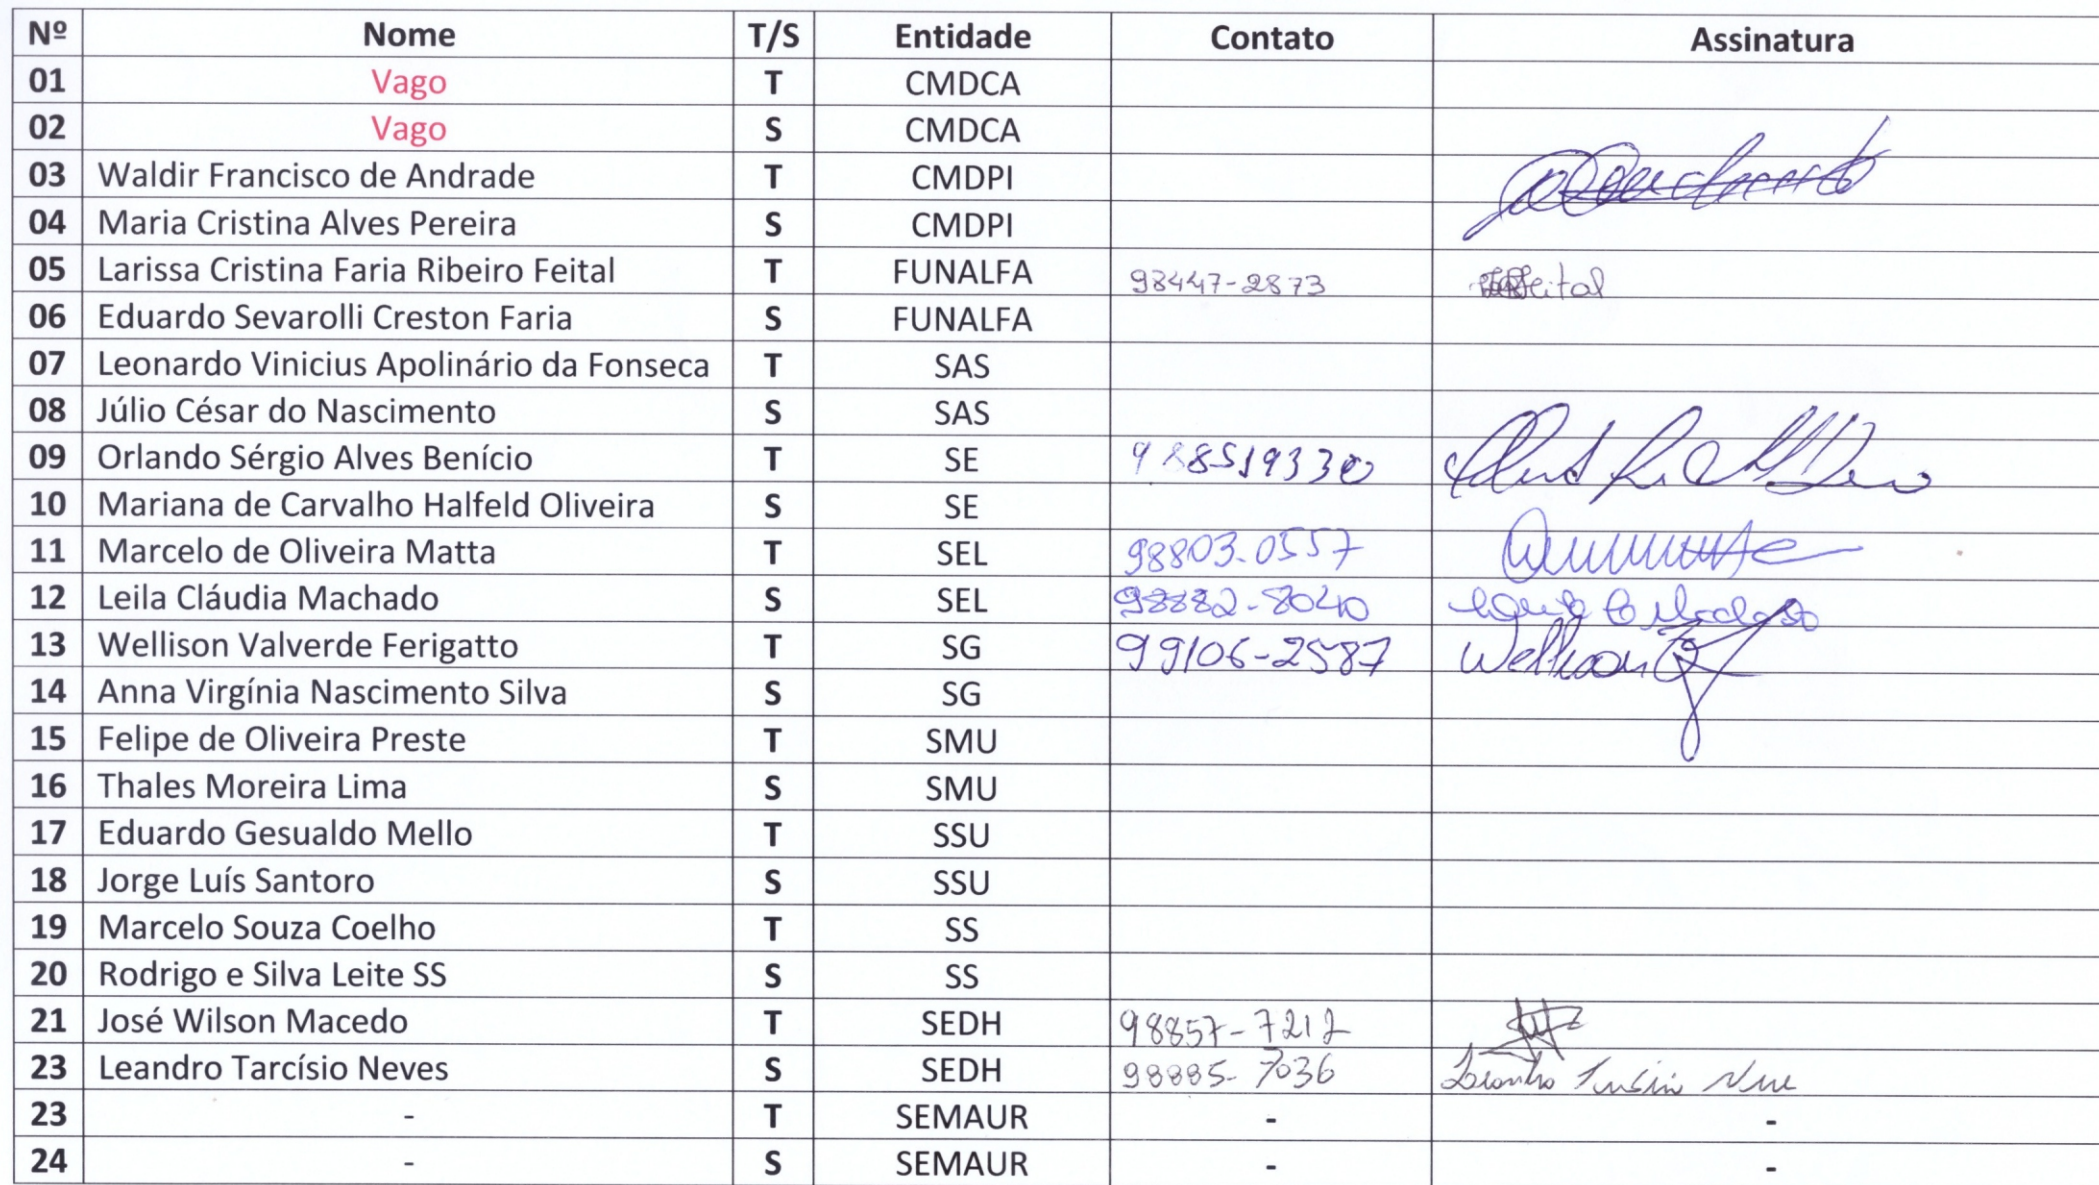 Nº Nome T/S Entidade Contato Assinatura
01 Vago T CMDCA
02 Vago S CMDCA
03 Waldir Francisco de Andrade T CMDPI
04 Maria Cristina Alves Pereira S CMDPI
05 Larissa Cristina Faria Ribeiro Feital T FUNALFA 98447-2873 Feital
06 Eduardo Sevarolli Creston Faria S FUNALFA
07 Leonardo Vinicius Apolinário da Fonseca T SAS
08 Júlio César do Nascimento S SAS
09 Orlando Sérgio Alves Benício T SE 988519330
10 Mariana de Carvalho Halfeld Oliveira S SE
11 Marcelo de Oliveira Matta T SEL 98803-0557
12 Leila Cláudia Machado S SEL 98882-8040
13 Wellison Valverde Ferigatto T SG 99106-2587 Wellison
14 Anna Virgínia Nascimento Silva S SG
15 Felipe de Oliveira Preste T SMU
16 Thales Moreira Lima S SMU
17 Eduardo Gesualdo Mello T SSU
18 Jorge Luís Santoro S SSU
19 Marcelo Souza Coelho T SS
20 Rodrigo e Silva Leite SS S SS
21 José Wilson Macedo T SEDH 98857-7212
23 Leandro Tarcísio Neves S SEDH 98885-7036 Leandro Tarcísio Neves
23 - T SEMAUR - -
24 - S SEMAUR - -